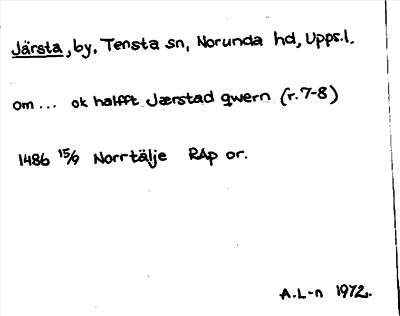 Järsta, by, Tensta sn, Norunda hd, Upps.l.
om ... ok halfft Jærstad qwern (r. 7-8)
1486 15/9 Norrtälje RAp or.
A.L-n 1972.